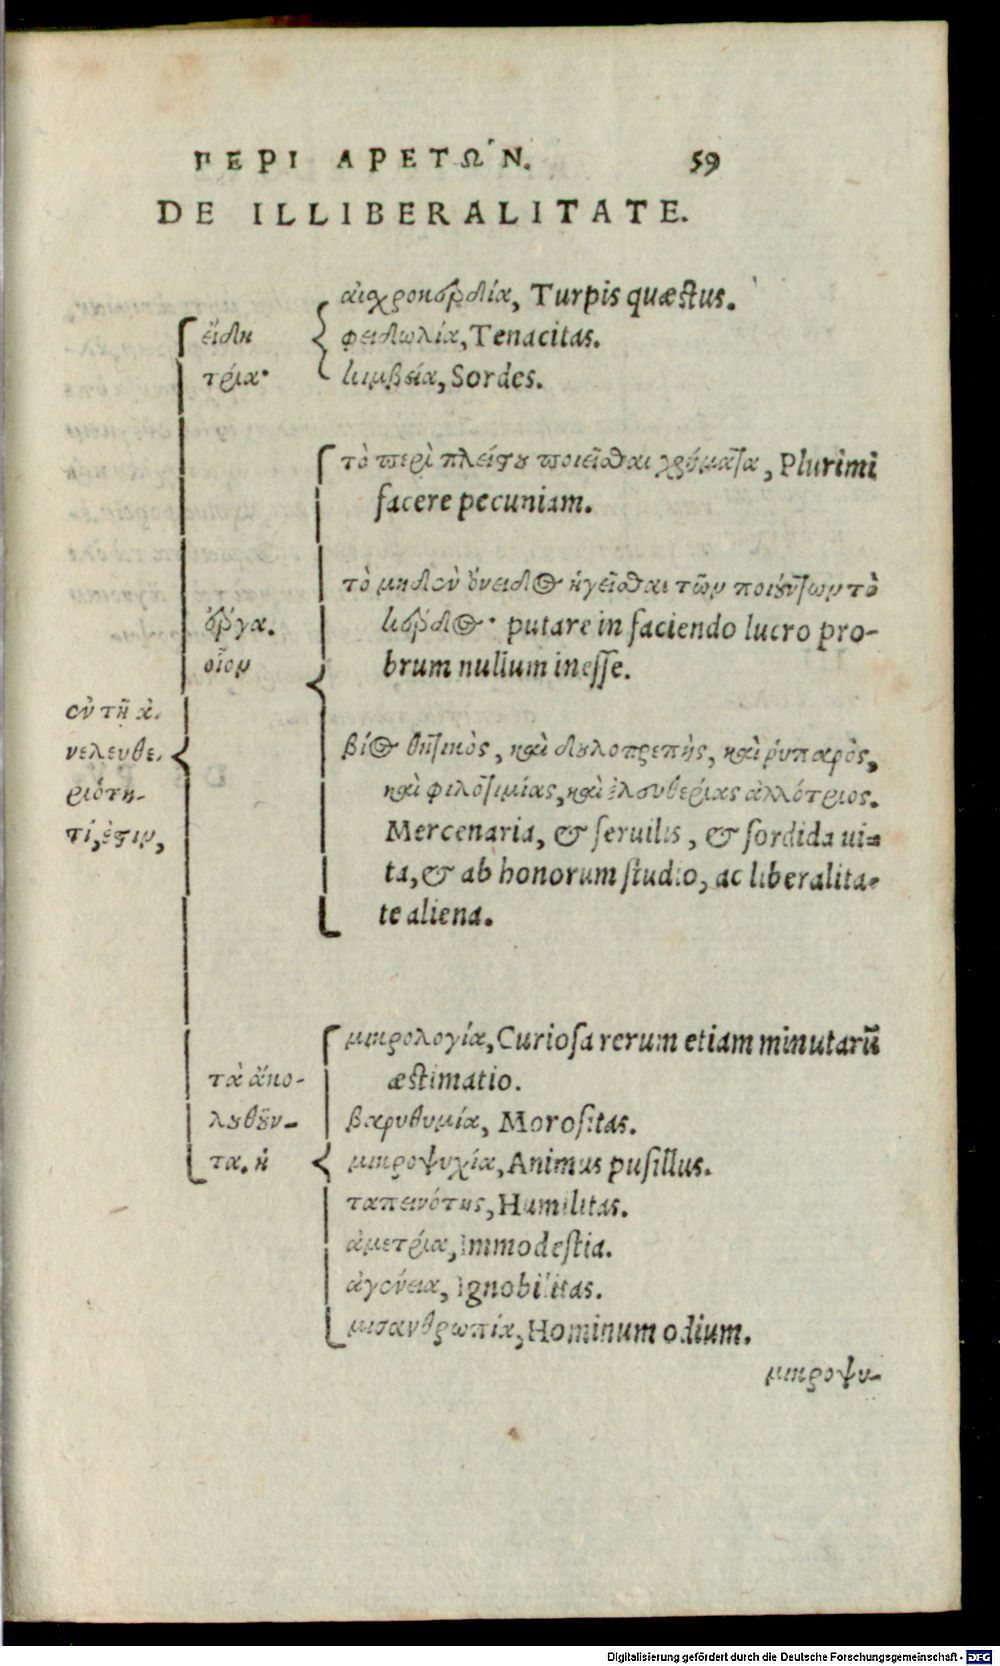 ΠΕΡΙ ΑΡΕΤΩ͂Ν. 59
DE ILLIBERALITATE.
ἐν τῇ ἀ-
νελευθε-
ριότη-
τί, ἐστιν,
εἴδη
τρία·
αἰσχροκέρδεία, Turpis quæstus.
φειδωλία, Tenacitas.
κιμβεία, Sordes.
ἔργα.
οἷον
τὸ περὶ πλείστου ποιεῖσθαι χρήματα, Plurimi
facere pecuniam.
τὸ μηδὲν ὄνειδος ἡγεῖσθαι τῶν ποιούντων τὸ
κέρδος· putare in faciendo lucro pro-
brum nullum inesse.
βίος θητικὸς, καὶ δουλοπρεπὴς, καὶ ῥυπαρὸς,
καὶ φιλοτιμίας, καὶ ἐλευθερίας ἀλλότριος.
Mercenaria, & seruilis, & sordida ui-
ta, & ab honorum studio, ac liberalita-
te aliena.
τὰ ἀκο-
λουθοῦν-
τα. ἡ
μικρολογία, Curiosa rerum etiam minutarū
æstimatio.
βαρυθυμία, Morositas.
μικροψυχία, Animus pusillus.
ταπεινότης, Humilitas.
ἀμετρία, Immodestia.
ἀγένεια, Ignobilitas.
μισανθρωπία, Hominum odium.
μικροψυ-
Digitalisierung gefördert durch die Deutsche Forschungsgemeinschaft - DFG